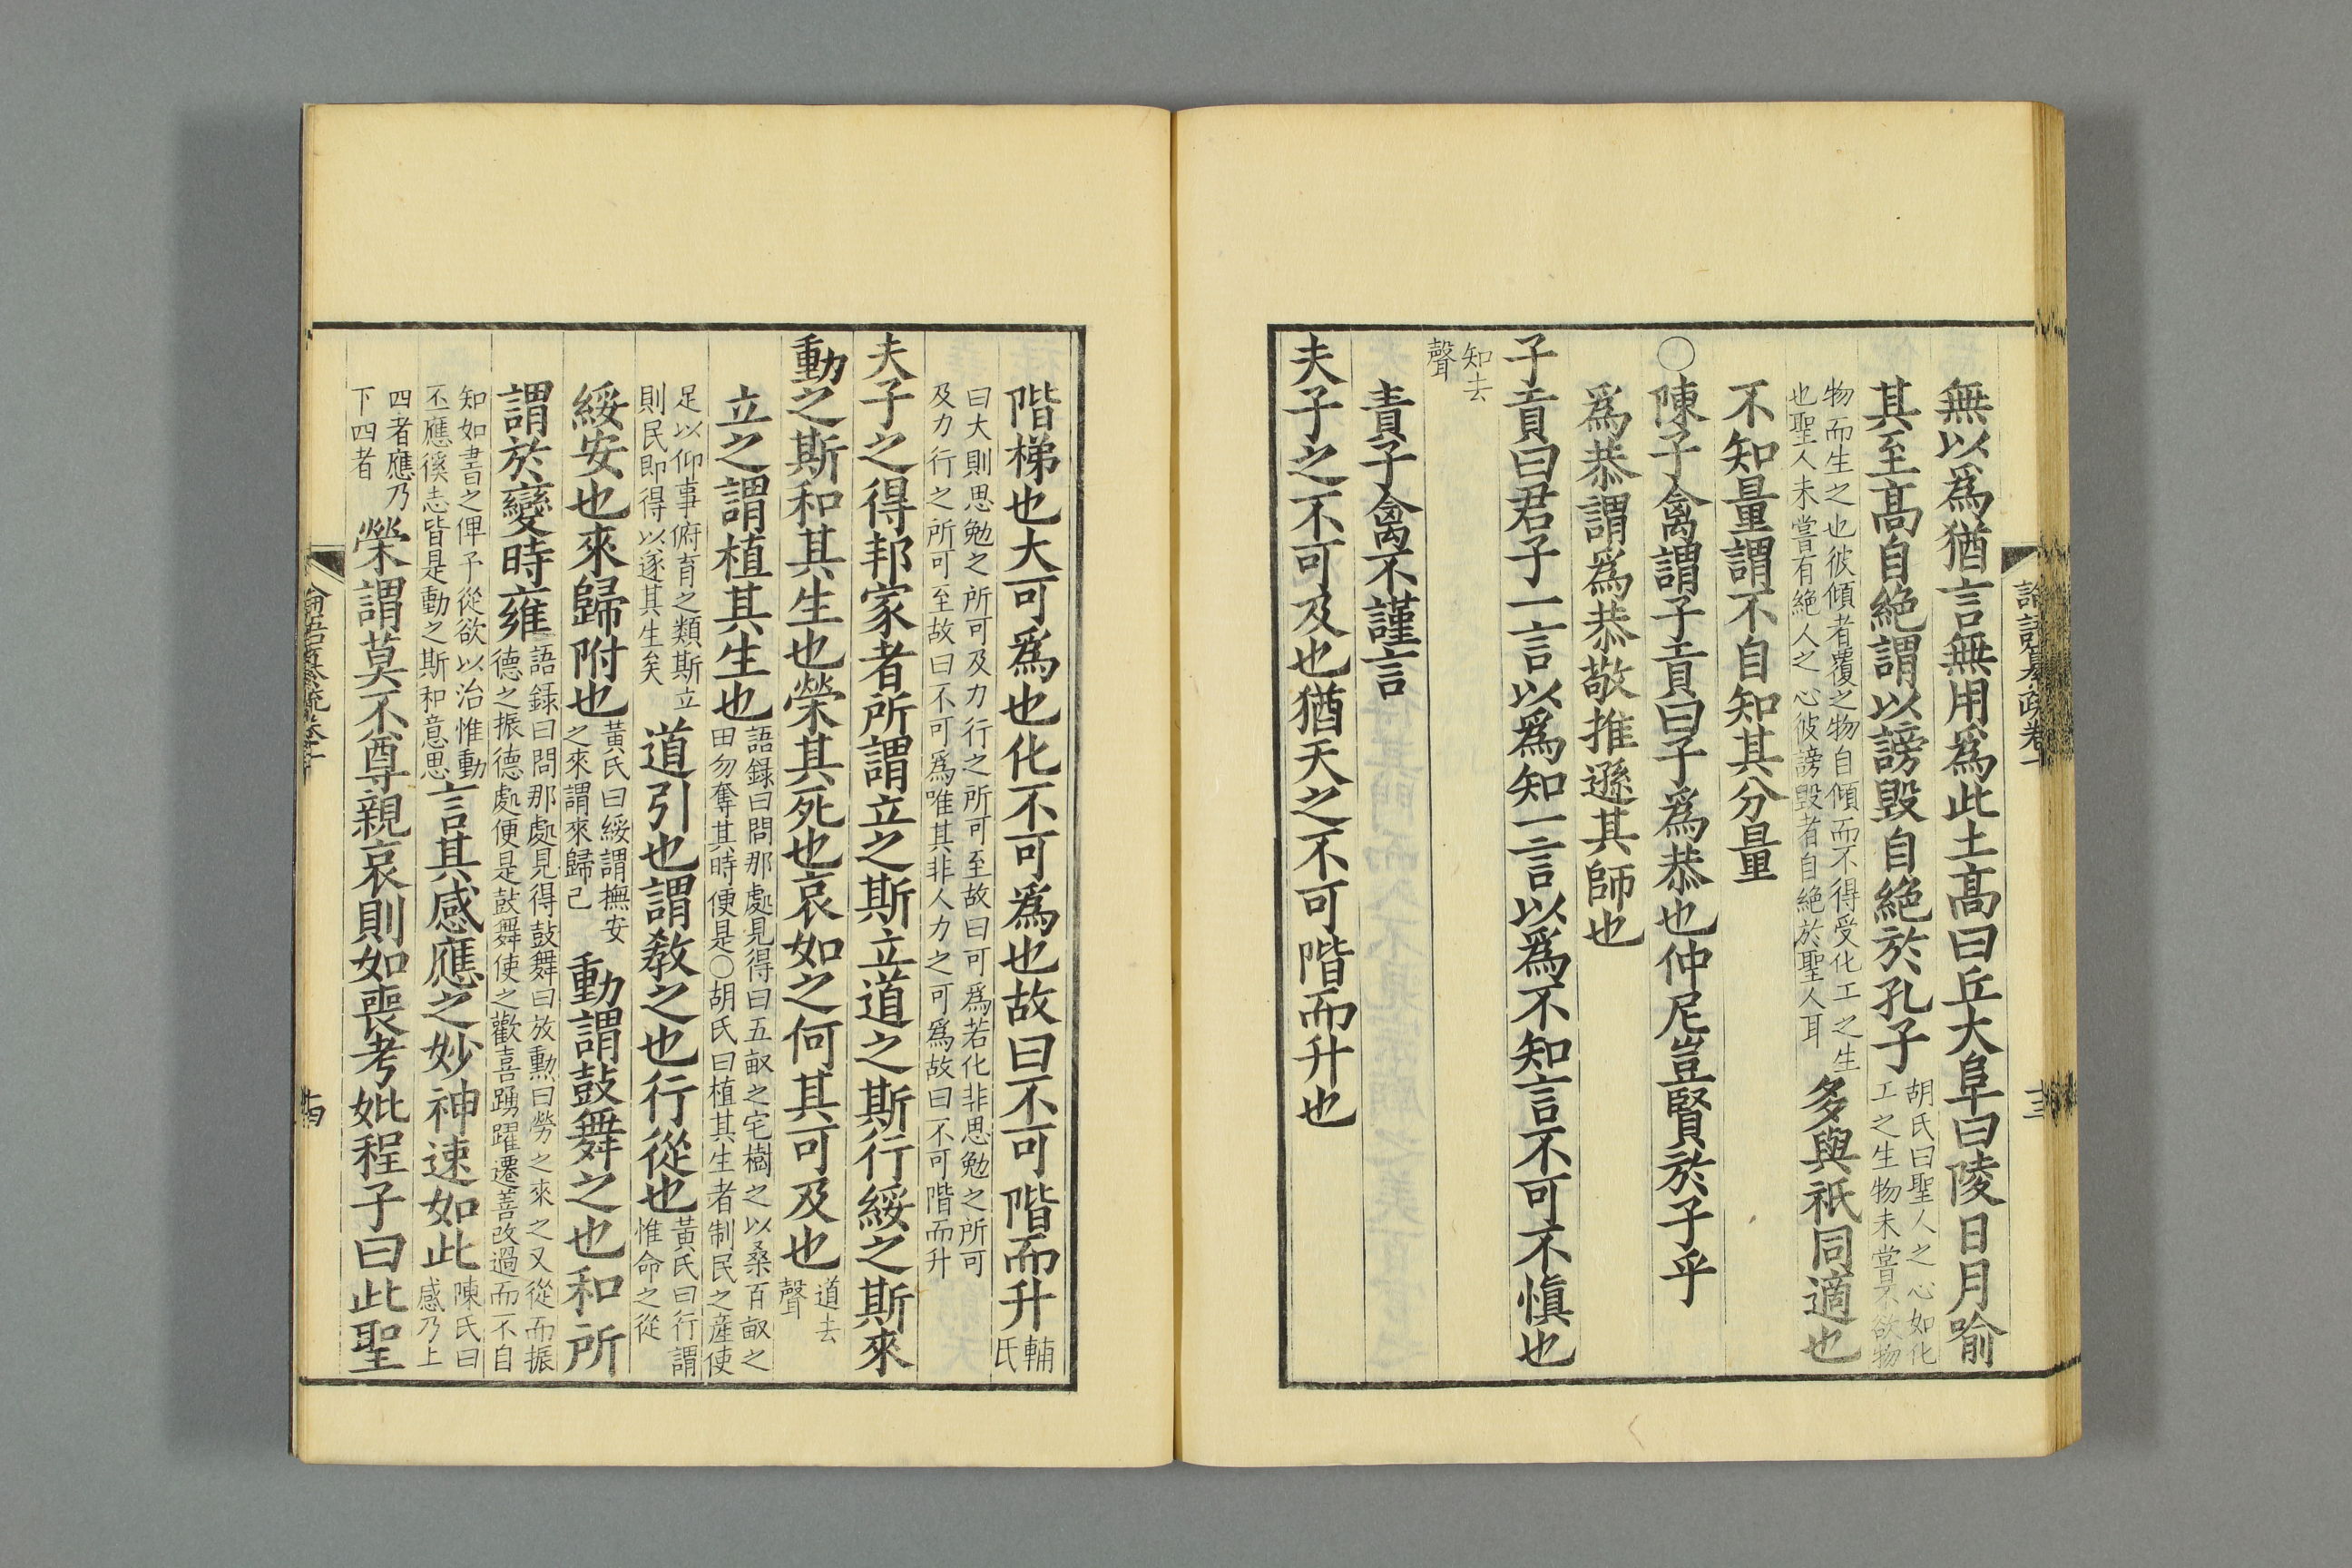 無以爲猶言無用爲此土高曰丘大阜曰陵日月喻
其至高自絶謂以謗毀自絶於孔子胡氏曰聖人之心如化
工之生物未嘗不欲物
物而生之也彼傾者覆之物自傾而不得受化工之生
也聖人未嘗有絶人之心彼謗毀者自絶於聖人耳
多與祇同適也
不知量謂不自知其分量
○陳子禽謂子貢曰子爲恭也仲尼豈賢於子乎
爲恭謂爲恭敬推遜其師也
子貢曰君子一言以爲知一言以爲不知言不可不愼也
知去
聲
責子禽不謹言
夫子之不可及也猶天之不可階而升也
階梯也大可爲也化不可爲也故曰不可階而升輔
氏
曰大則思勉之所可及力行之所可至故曰可爲若化非思勉之所可
及力行之所可至故曰不可爲唯其非人力之可爲故曰不可階而升
夫子之得邦家者所謂立之斯立道之斯行綏之斯來
動之斯和其生也榮其死也哀如之何其可及也道去
聲
立之謂植其生也語録曰問那處見得曰五畝之宅樹之以桑百畝之
田勿奪其時便是○胡氏曰植其生者制民之産使
足以仰事俯育之類斯立
則民即得以遂其生矣
道引也謂教之也行從也黃氏曰行謂
惟命之從
綏安也來歸附也黃氏曰綏謂撫安
之來謂來歸己
動謂鼓舞之也和所
謂於變時雍語録曰問那處見得鼓舞曰放勳曰勞之來之又從而振
德之振德處便是鼓舞使之歡喜踴躍遷善改過而不自
知如書之俾予從欲以治惟動
丕應徯志皆是動之斯和意思
言其感應之妙神速如此陳氏曰
感乃上
四者應乃
下四者
榮謂莫不尊親哀則如喪考妣程子曰此聖